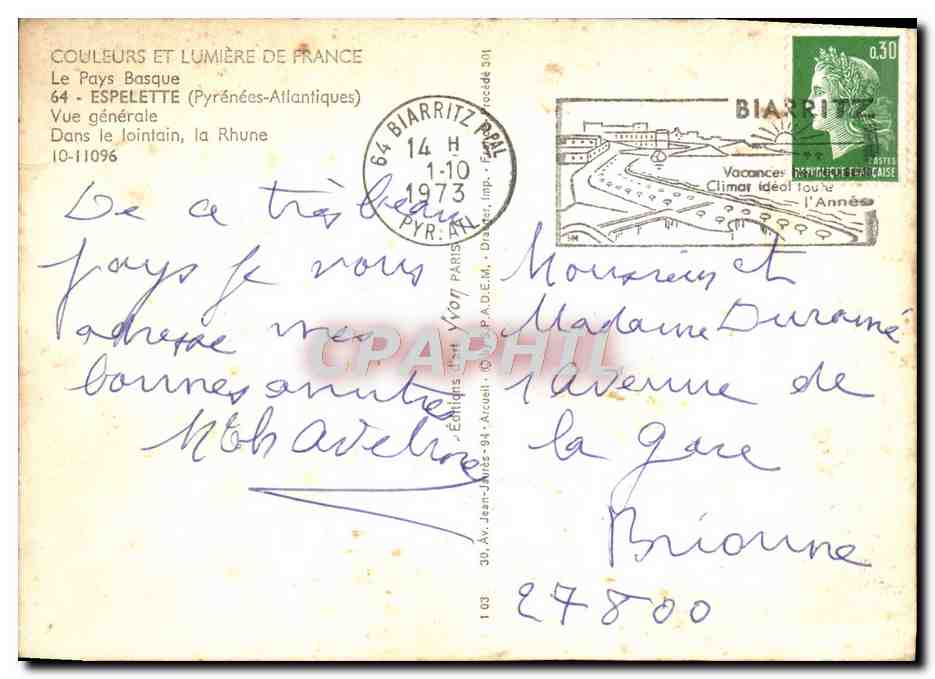 COULEURS ET LUMIÈRE DE FRANCE
Le Pays Basque
64 - ESPELETTE (Pyrénées-Atlantiques)
Vue générale
Dans le lointain, la Rhune
10-11096
64 BIARRITZ PPAL
14 H
1-10
1973
PYR. ATL.
BIARRITZ
Vacances
Climat idéal toute
l'Année
0,30
POSTES
REPUBLIQUE FRANÇAISE
De ce très beau
pays je vous
adresse mes
bonnes amitiés
Monsieur et
Madame Duramé
1 avenue de
la gare
Brionne
27800
Éditions d'art Yvon PARIS
30, Av. Jean-Jaurès - 94 - Arcueil
P.A.D.E.M. Draeger, Imp.
Procédé 501
1 03
CPAPHIL